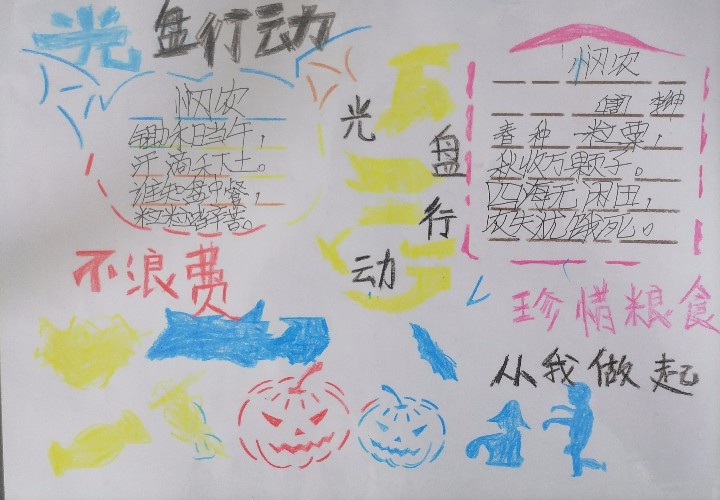 光盘行动
悯农
锄禾日当午，
汗滴禾下土。
谁知盘中餐，
粒粒皆辛苦。
不浪费
光盘行动
悯农
李绅
春种一粒粟，
秋收万颗子。
四海无闲田，
农夫犹饿死。
珍惜粮食
从我做起